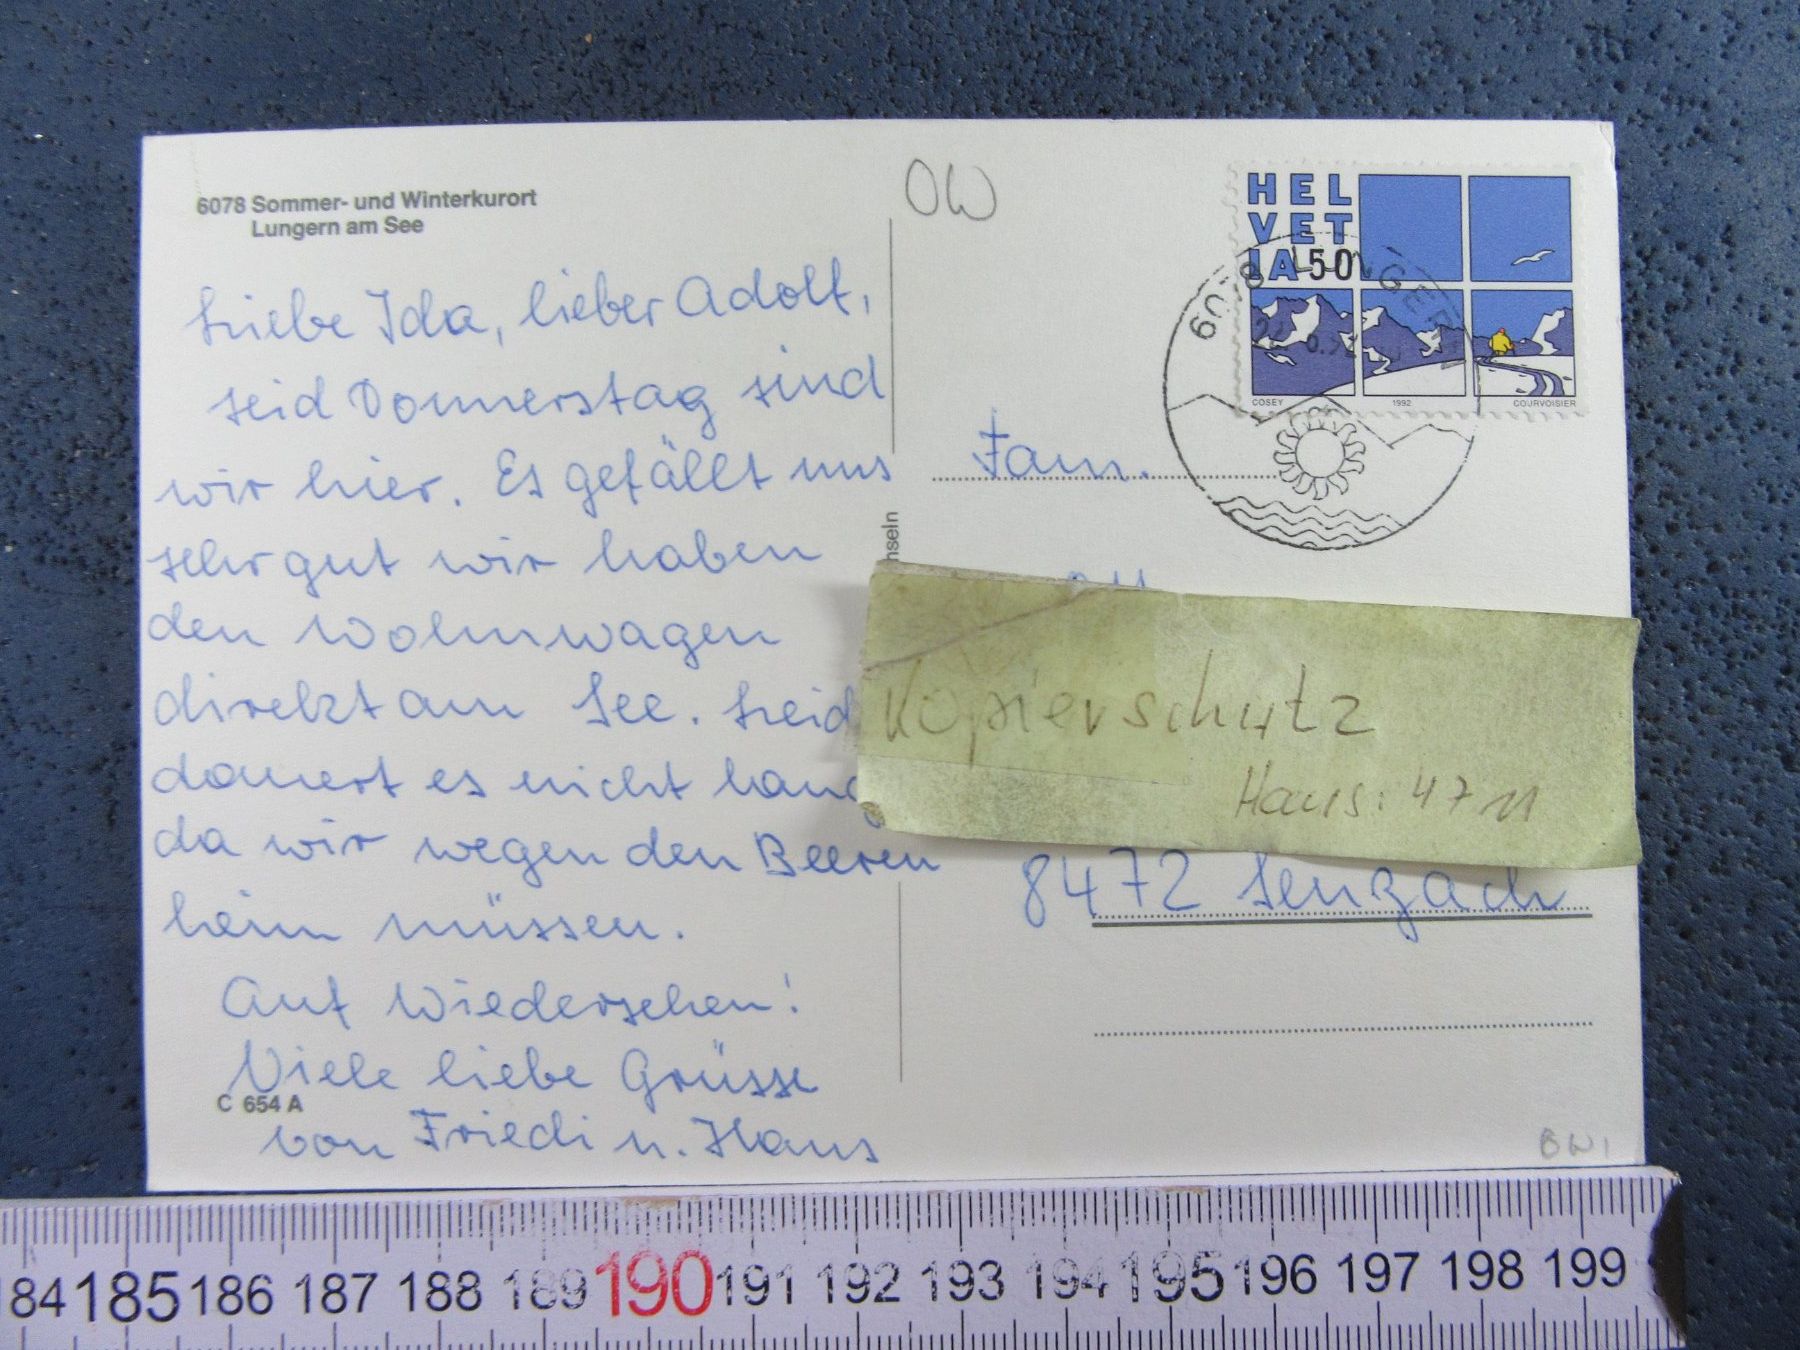 6078 Sommer- und Winterkurort
Lungern am See
Liebe Ida, lieber Adolf,
seid Donnerstag sind
wir hier. Es gefällt uns
sehr gut wir haben
den Wohnwagen
direkt am See. Leid
dauert es nicht lang
da wir wegen den Beeren
heim müssen.
Auf Wiedersehen!
Viele liebe Grüsse
C 654 A
von Friedi u. Hans
OW
HEL
VET
IA 50
COSEY 1992 COURVOISIER
6078 LUNGERN
Fam.
nseln
Kopierschutz
Haus: 47 11
8472 Seuzach
BW1
84 185 186 187 188 189 190 191 192 193 194 195 196 197 198 199